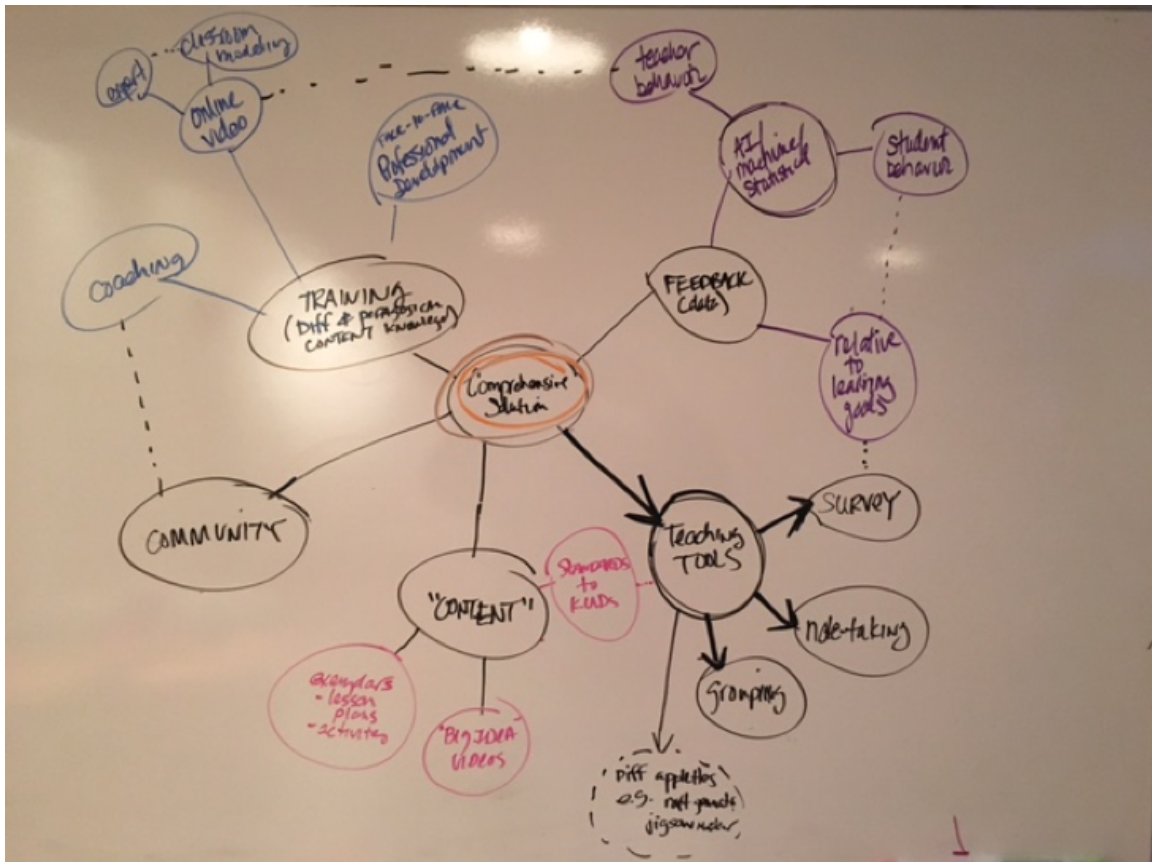 classroom
modeling
expert
online
video
FACE-TO-FACE
Professional
Development
teacher
behavior
AI/
machine/
statistics
student
behavior
coaching
TRAINING
(Diff & pedagogical
CONTENT knowledge)
FEEDBACK
(data)
"Comprehensive
solution"
relative
to
learning
goals
COMMUNITY
"CONTENT"
STANDARDS
to
KUDs
Teaching
TOOLS
SURVEY
note-taking
grouping
exemplars
- lesson
plans
- activities
"BIG IDEA"
VIDEOS
Diff applettes
e.g.
jigsaw maker